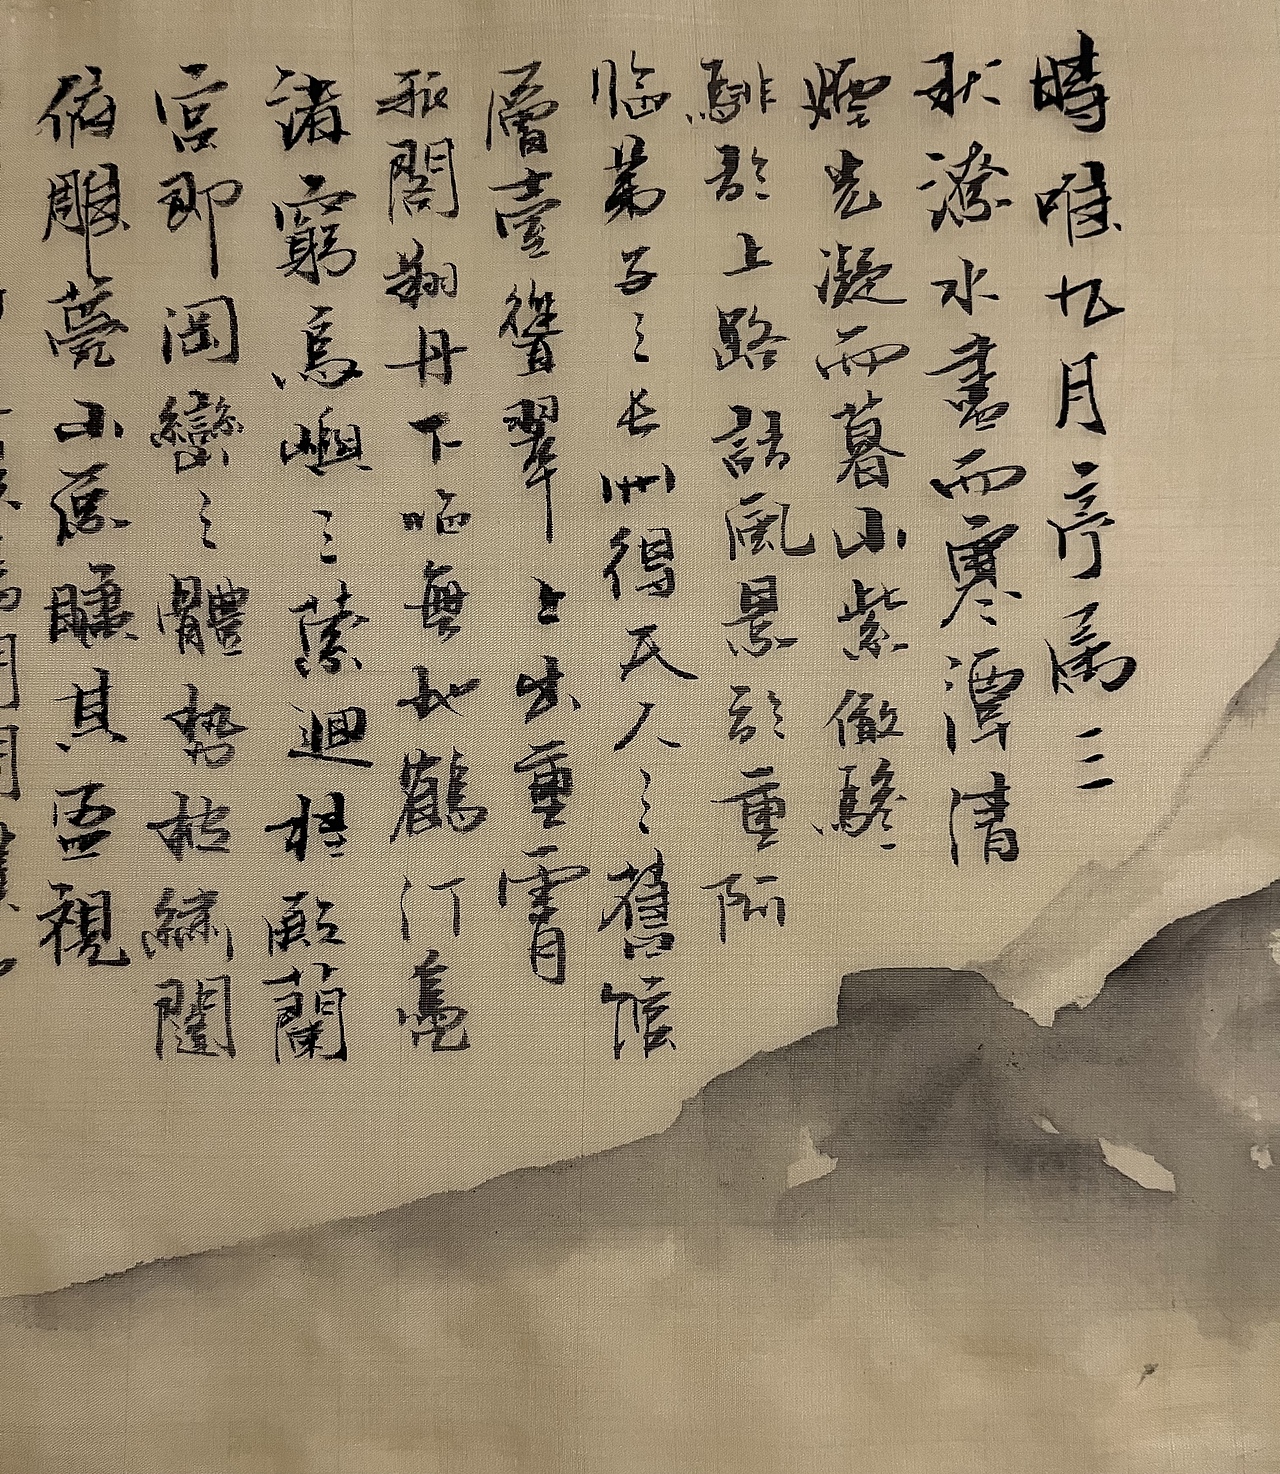 時唯九月序屬三
秋潦水盡而寒潭清
煙光凝而暮山紫儼驂
騑於上路訪風景於重阿
臨第子之長州得天人之舊館
層臺聳翠上出重霄
飛閣翔丹下臨無地鶴汀鳧
渚窮島嶼之縈迴桂殿蘭
宮即岡巒之體勢披繡闥
俯雕甍山原曠其盈視